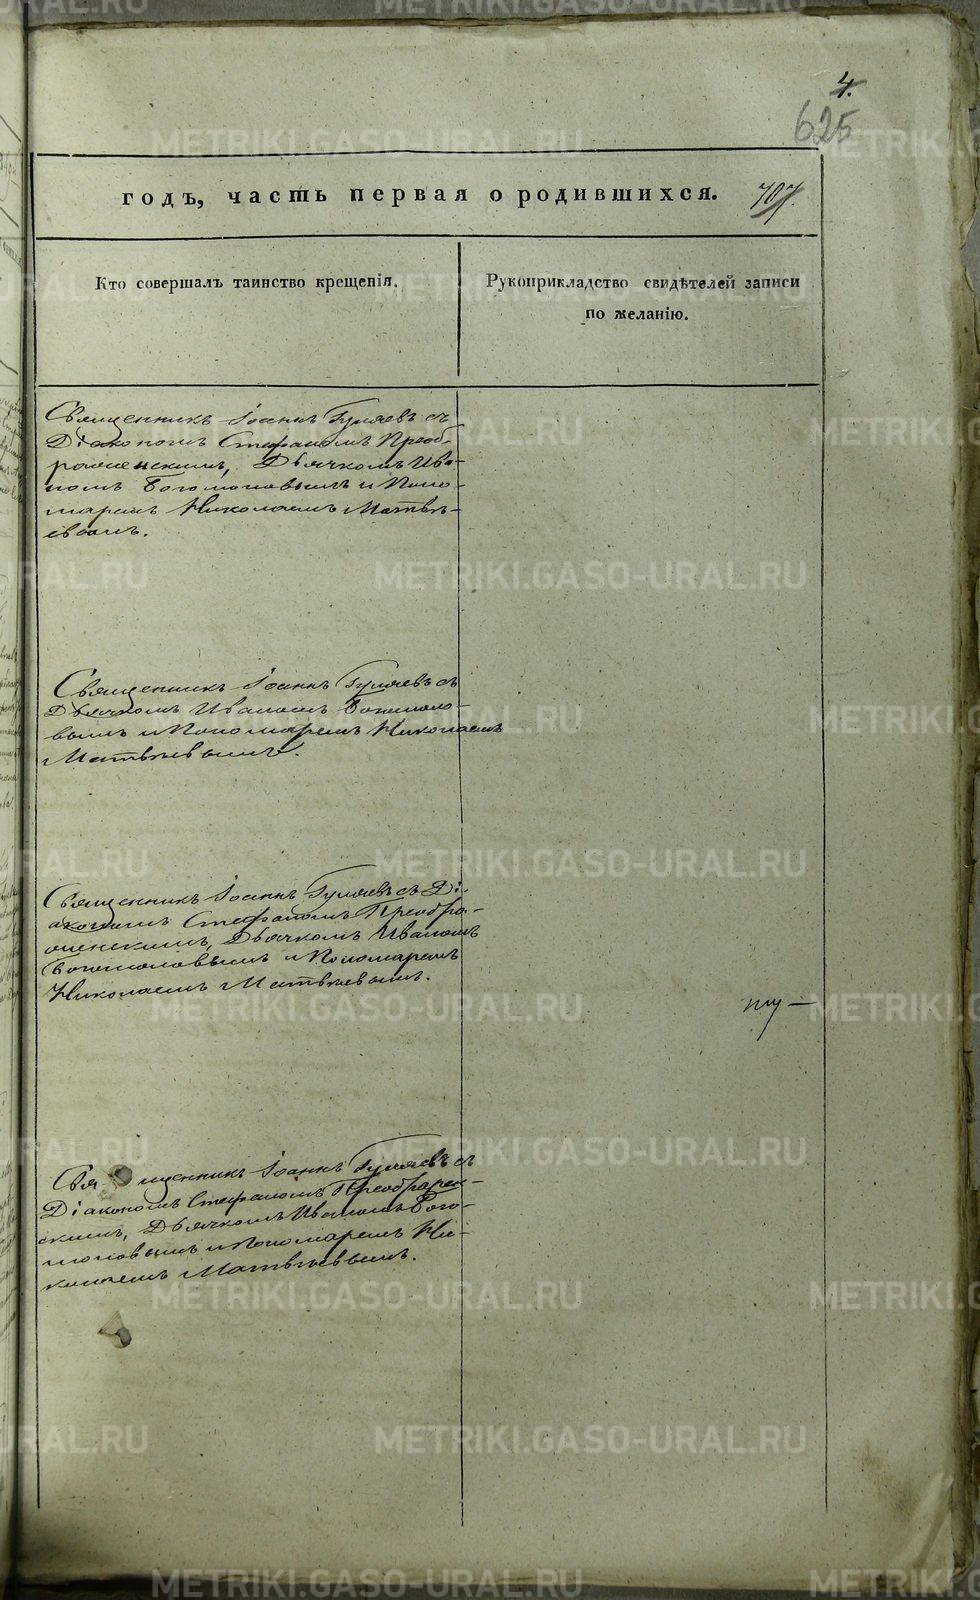 4.
625
годъ, часть первая о родившихся. 707.
Кто совершалъ таинство крещенія.
Рукоприкладство свидѣтелей записи
по желанію.
Священникъ Іоаннъ Гуляевъ съ
Діакономъ Стефаномъ Преоб-
раженскимъ, Дьячкомъ Ива-
номъ Богомоловымъ и Поно-
маремъ Николаемъ Матвѣ-
евымъ.
Священникъ Іоаннъ Гуляевъ съ
Дьячкомъ Иваномъ Богомоло-
вымъ и Пономаремъ Николаемъ
Матвѣевымъ.
Священникъ Іоаннъ Гуляевъ съ Ді-
акономъ Стефаномъ Преобра-
женскимъ, Дьячкомъ Иваномъ
Богомоловымъ и Пономаремъ
Николаемъ Матвѣевымъ.
Священникъ Іоаннъ Гуляевъ съ
Діакономъ Стефаномъ Преображен-
скимъ, Дьячкомъ Иваномъ Бого-
моловымъ и Пономаремъ Ни-
колаемъ Матвѣевымъ.
METRIKI.GASO-URAL.RU